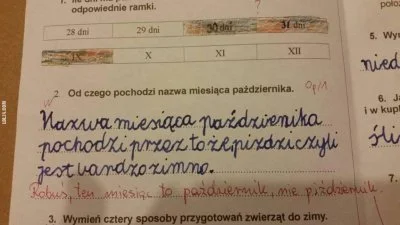 odpowiednie ramki.
28 dni 29 dni 30 dni 31 dni
IX X XI XII
2. Od czego pochodzi nazwa miesiąca października.
Nazwa miesiąca października
pochodzi przez to że piździ czyli
jest bardzo zimno.
Robuś, ten miesiąc to październik, nie piździernik.
3. Wymień cztery sposoby przygotowań zwierząt do zimy.
5. Wy
6.
i w kup
7.